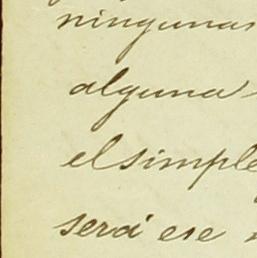 ningunas
alguna
el simple
será ese